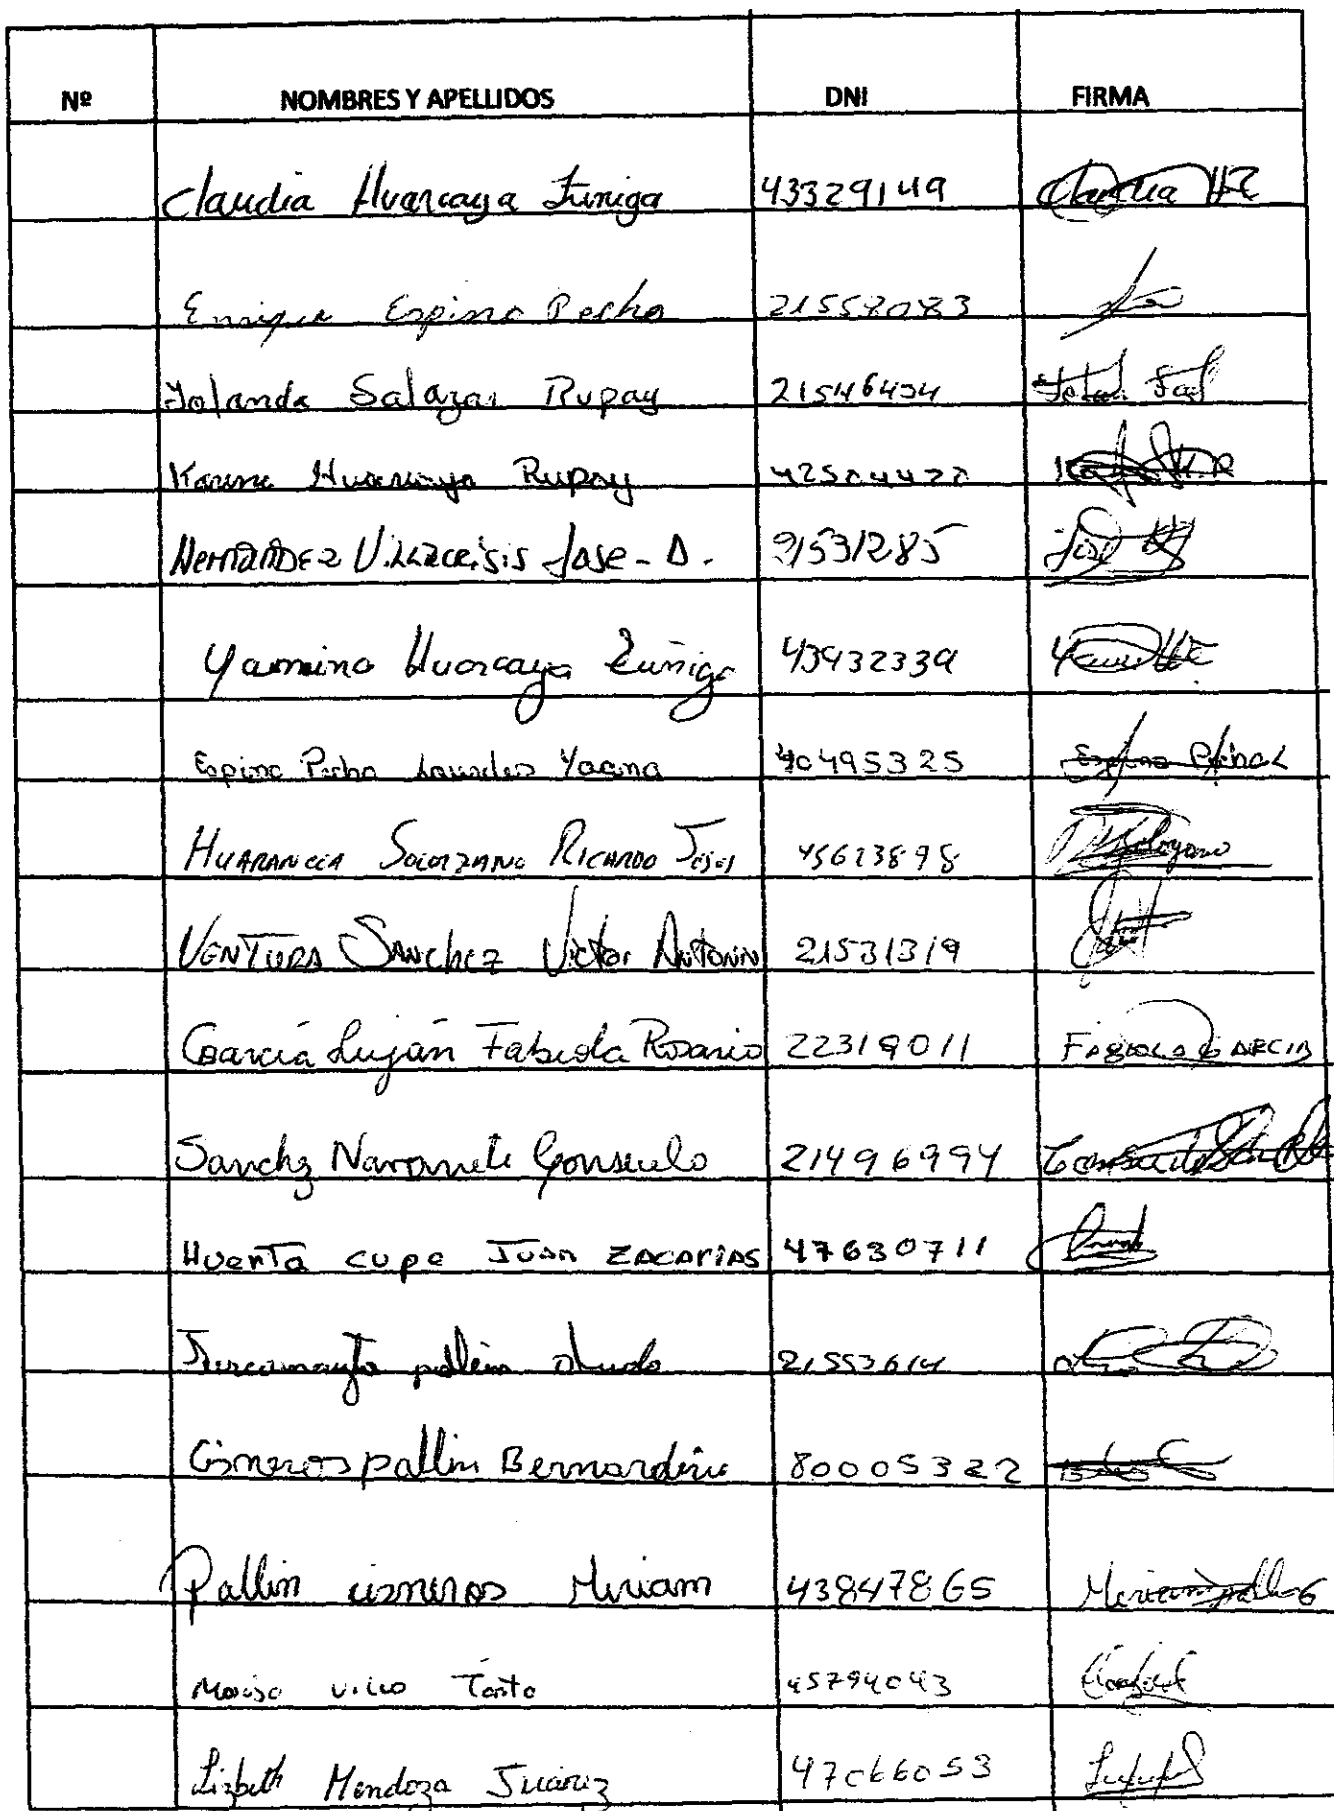 Nº NOMBRES Y APELLIDOS DNI FIRMA
Claudia Huarcaya Zuniga 43329149 Claudia HZ
Enrique Espino Pecho 21558083
Yolanda Salazar Rupay 21546434
Karina Huarcaya Rupay 42504420
HernANDEZ Villacrisis Jose - D. 21531285 José
Yamina Huarcaya Zuñiga 43932339
Espino Pecho Lourdes Yoana 40495325 Espino Pecho L
HUARANCCA SOLORZANO RICARDO Jesus 45623898 Solorzano
VENTURA SANchez Victor Antonio 21531319
García Luján Fabiola Rosario 22319011 FABIOLA GARCIA
Sanchz Navarrete Consuelo 21496994 Consuelo
HuertA cupe JuAn ZACAriAS 47630711
pallin 21553614
Cisneros pallin Bernardine 80005322
Pallin cisneros Miriam 43847865 Miriam pallin C
Vilco Tanta 45794043
Lizbeth Mendoza Juárez 47066053